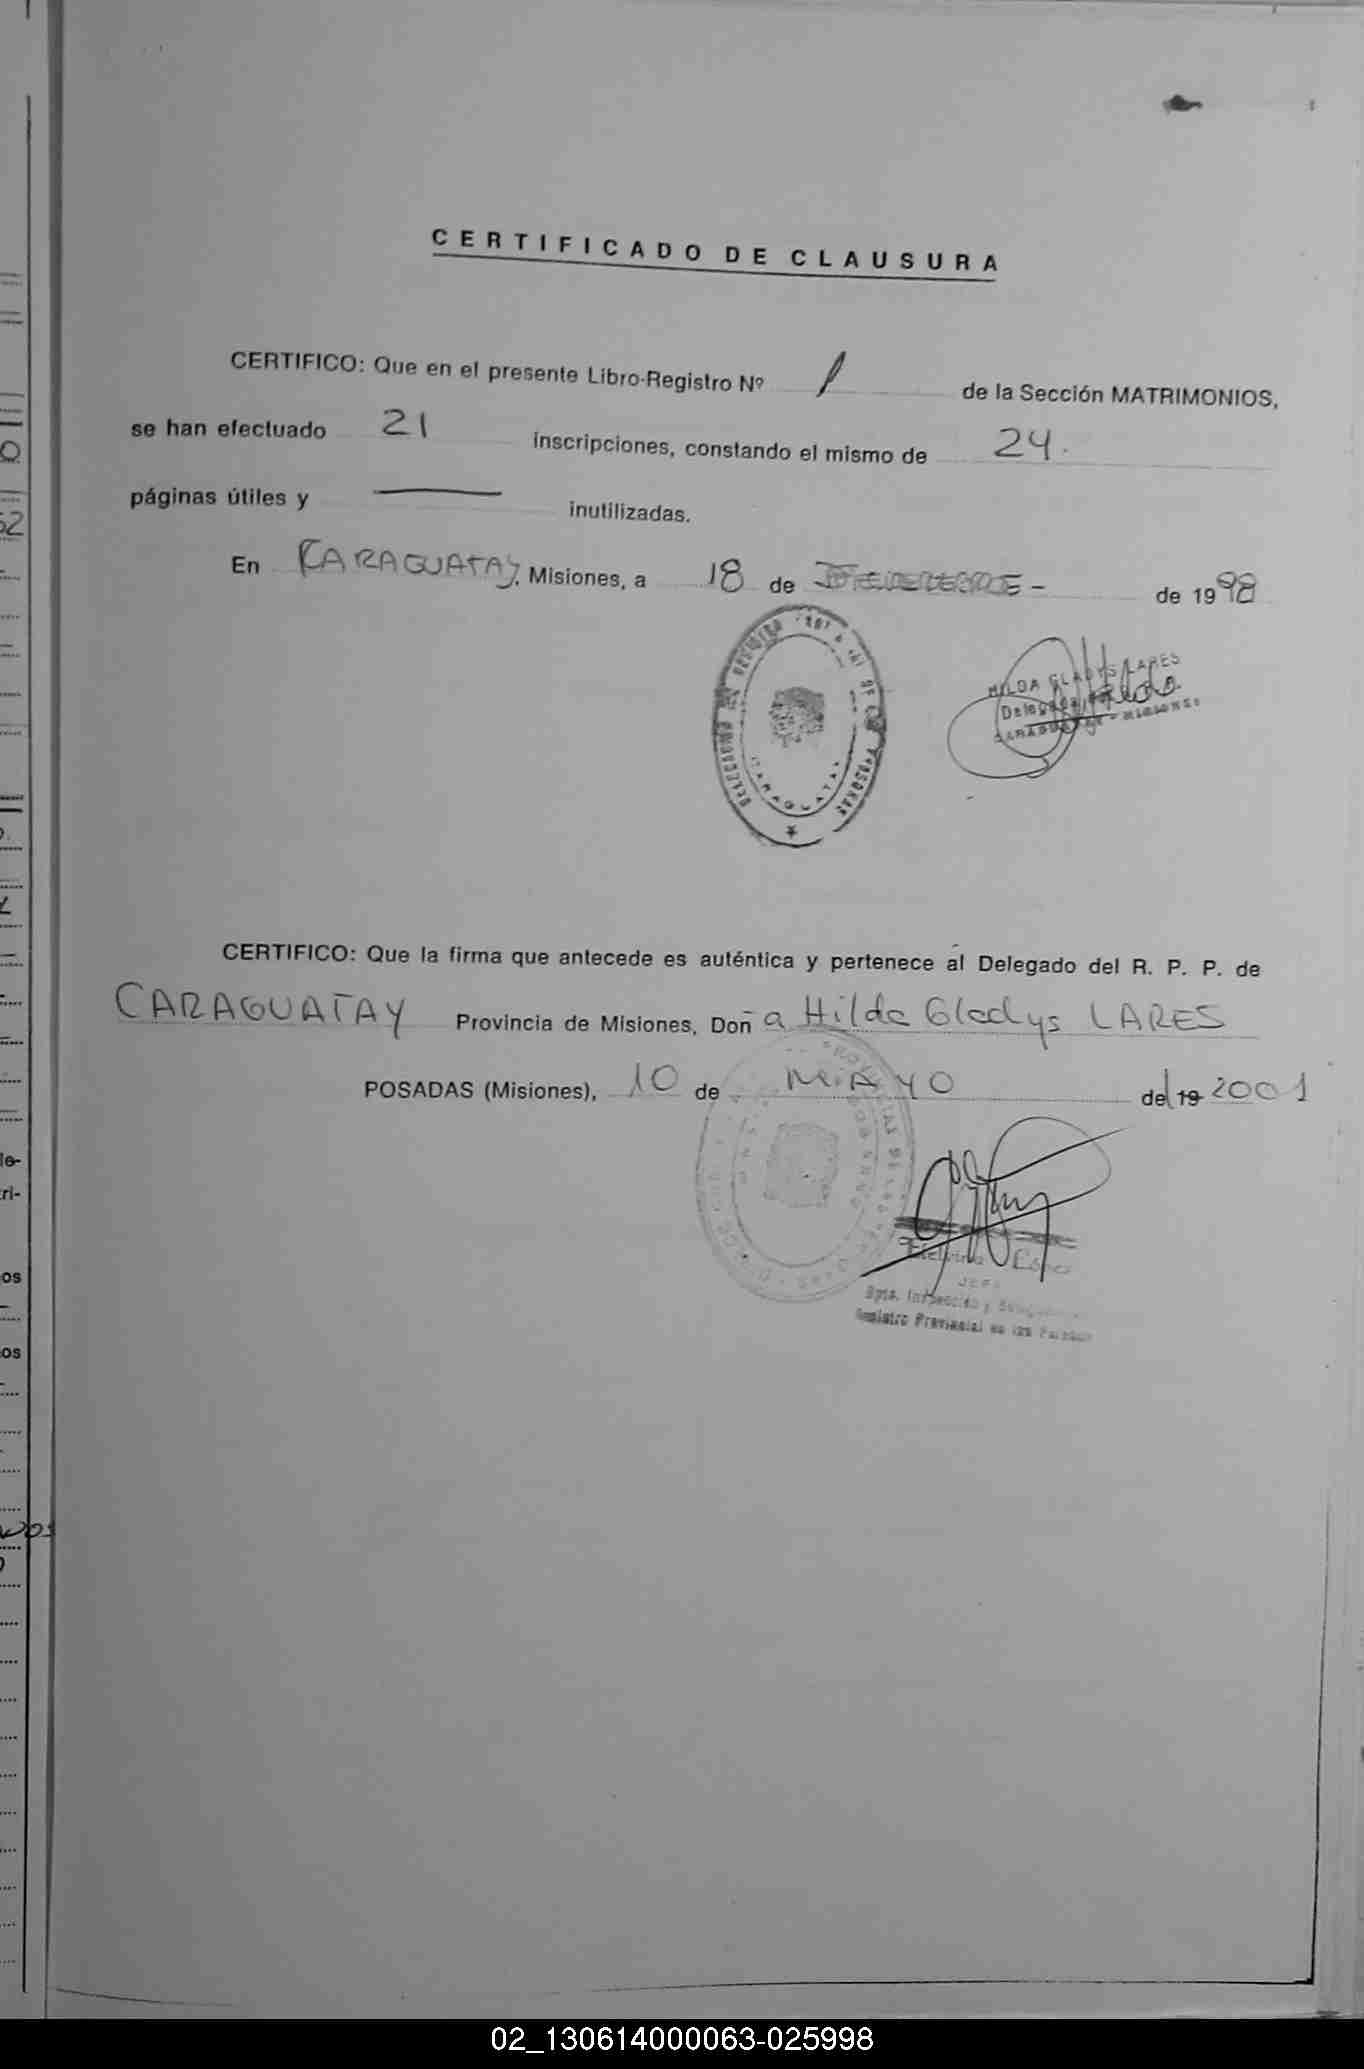 CERTIFICADO DE CLAUSURA
CERTIFICO: Que en el presente Libro-Registro Nº 1 de la Sección MATRIMONIOS,
se han efectuado 21 inscripciones, constando el mismo de 24.
páginas útiles y — inutilizadas.
En CARAGUATAY, Misiones, a 18 de de 1998
HILDA GLADYS LARES
CARAGUATAY - MISIONES
CARAGUATAY
CERTIFICO: Que la firma que antecede es auténtica y pertenece al Delegado del R. P. P. de
CARAGUATAY Provincia de Misiones, Doña Hilda Gladys LARES
POSADAS (Misiones), 10 de MAYO del 19 2001
JEFE
Dpto. Inspección y
Registro Provincial de las Personas
02_130614000063-025998